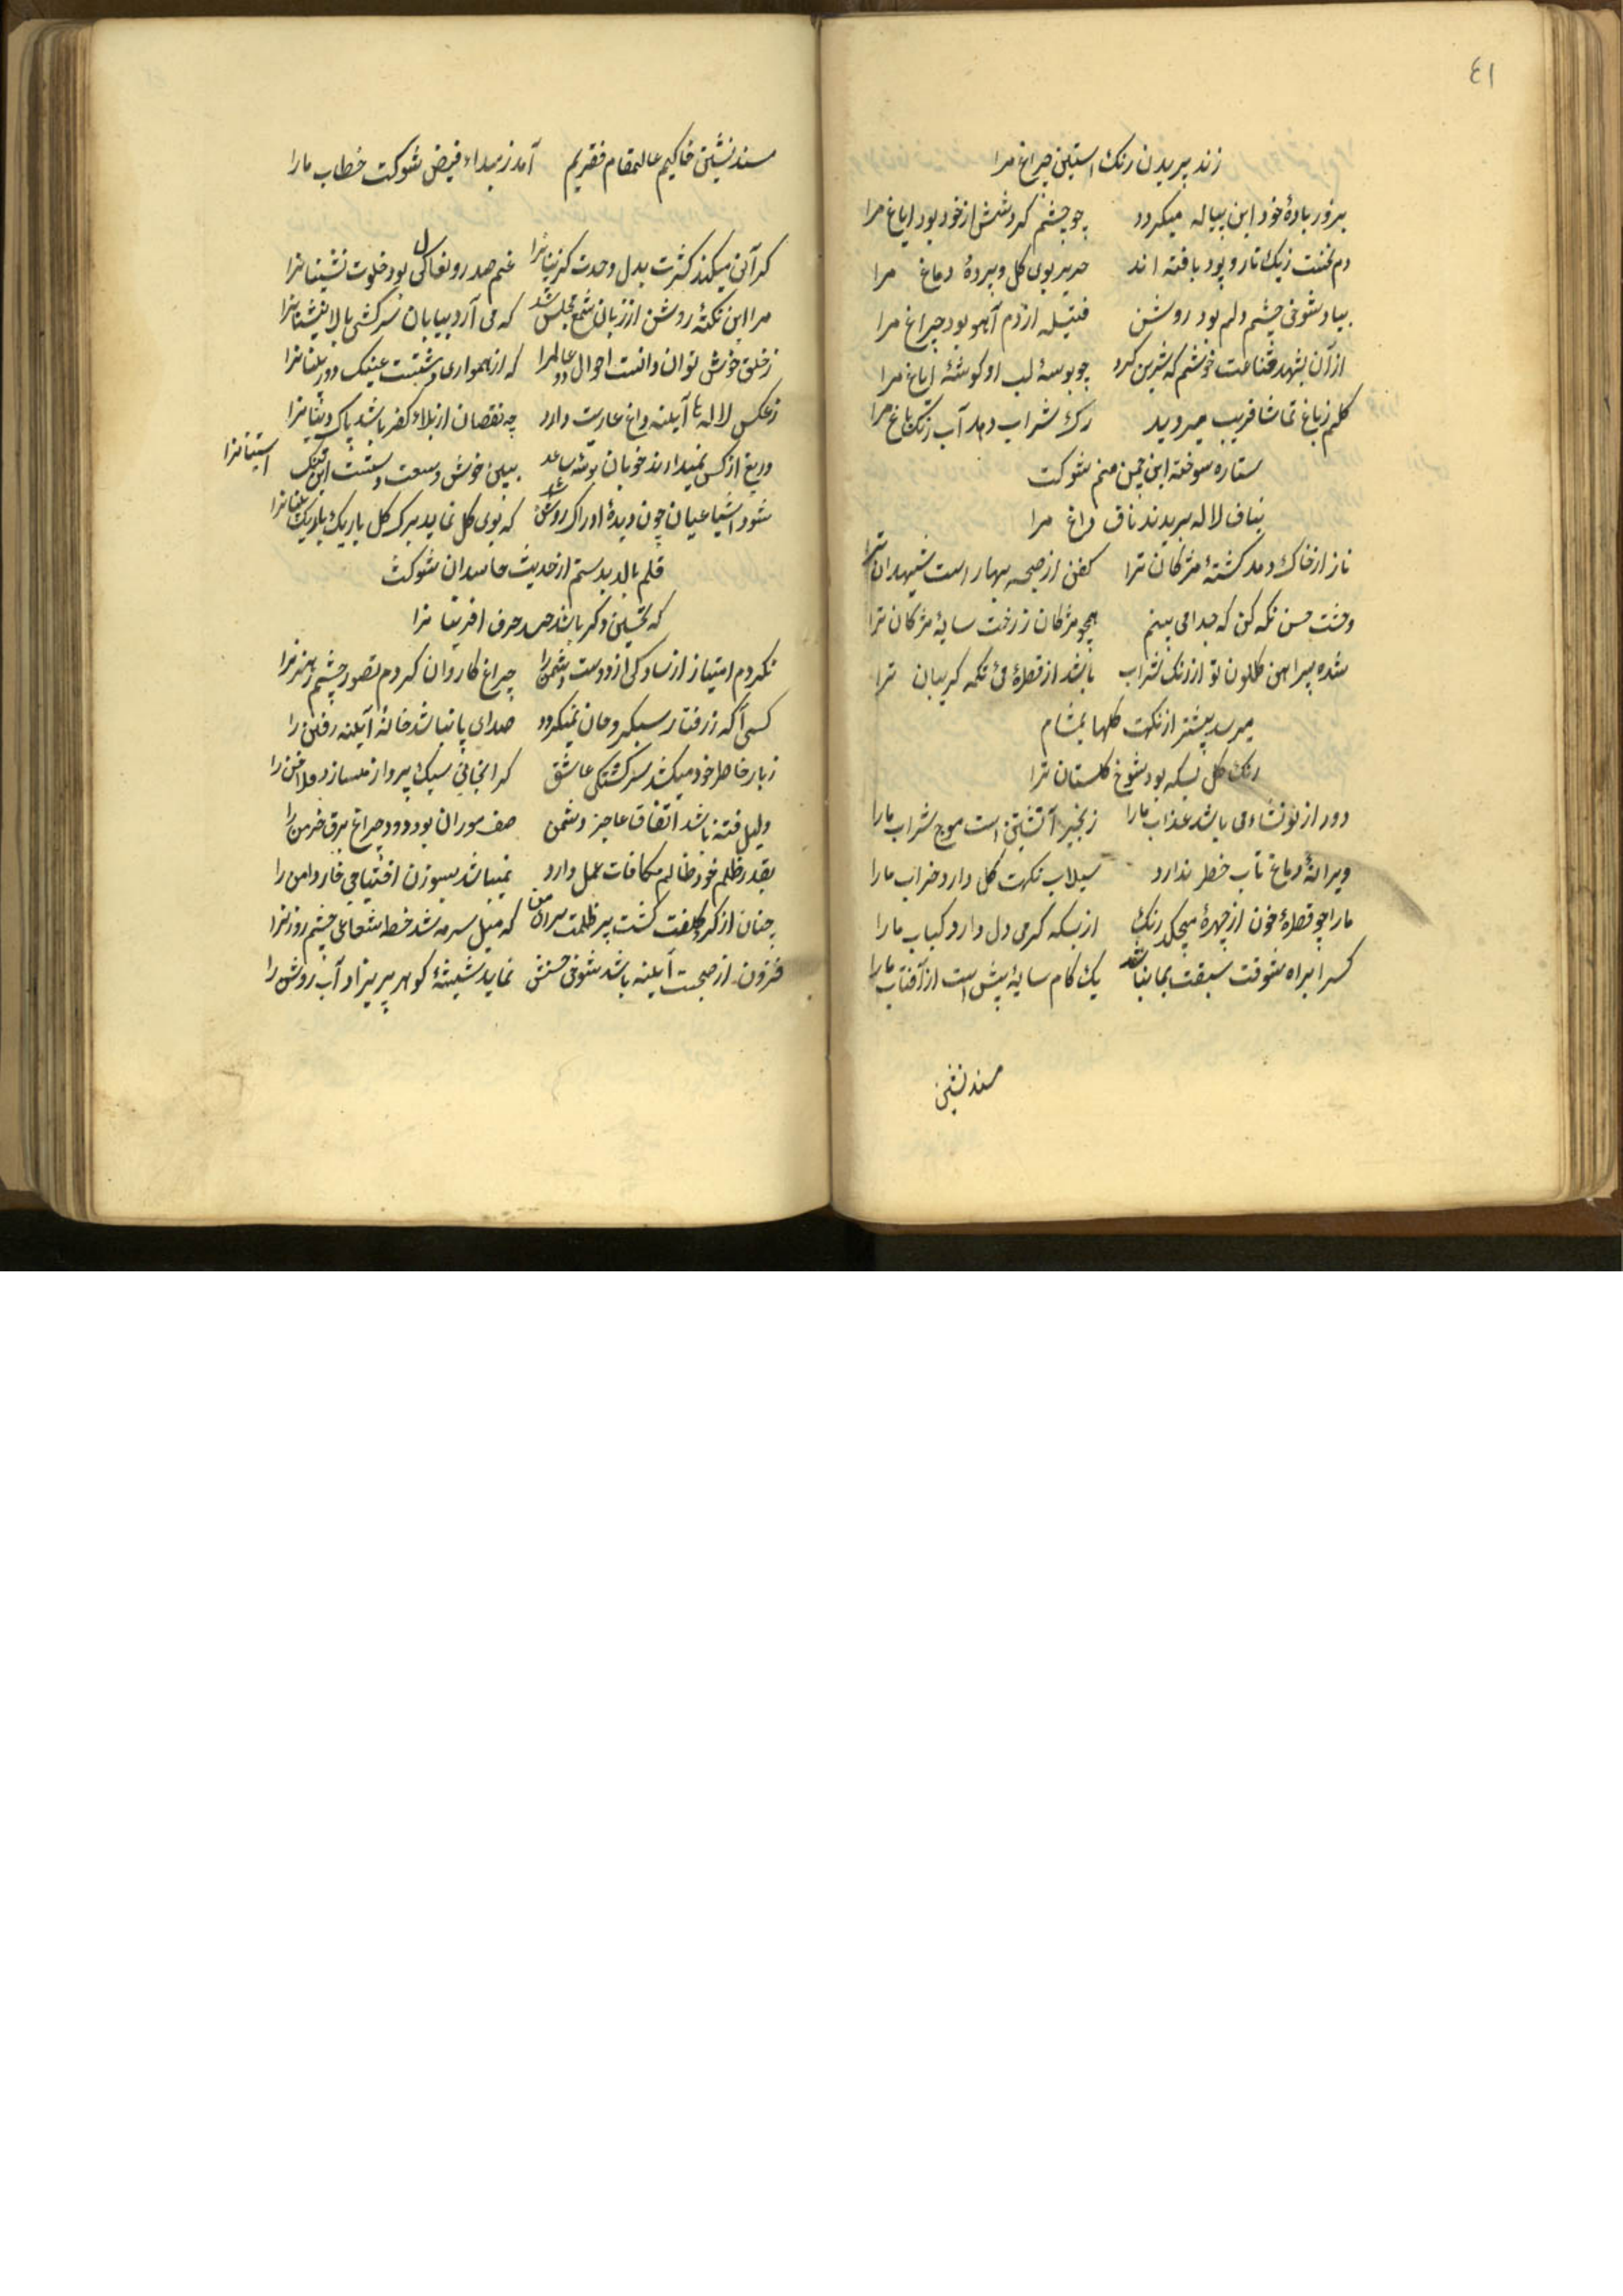 ٤١
زند پریدن رنک استین چراغ مرا
بزور بادهٔ خود این پیاله میکردد چو چشم کردشش از خود بود ایاغ مرا
دم نخست زیک تار و پود بافته اند حریر بوی کل و پردهٔ دماغ مرا
بیاد شوخی چشم دلم بود روشن فتیله از دم آهو بود چراغ مرا
از آن بشهد قناعت خوشم که شیرین کرد چو بوسهٔ لب او کوشهٔ ایاغ مرا
کلم زباغ تماشا فریب میروید رک شراب دهد آب رنک باغ مرا
ستاره سوخته این چمن منم شوکت
بناف لاله بریدند ناف داغ مرا
ناز از خاک دمد کشتهٔ مژکان ترا کفن از صبح بهار است شهیدان ترا
وحشت حسن نکه کن که جدا می بینم همچو مژکان زرخت سایهٔ مژکان ترا
شده پیراهن کلکون تو از رنک شراب باشد از قطرهٔ می تکمه کریبان ترا
میرسد پیشتر از نکهت کلها بمشام
رنک کل بسکه بود شوخ کلستان ترا
دور از تو نشاء می باشد عذاب ما را زنجیر آتشین است موج شراب ما را
ویرانهٔ دماغ تاب خطر ندارد سیلاب نکهت کل دارد خراب ما را
ما را چو قطرهٔ خون از چهره میچکد رنک از بسکه کرمی دل دارد کباب ما را
کس را براه شوقت سبقت بما نباشد یک کام سایه پیش است از آفتاب ما را
مسند نشین
مسند نشین خاکیم عالیمقام فقریم آمد زمبداء فیض شوکت خطاب ما را
کرآنی میکند کثرت بدل وحدت کزینانرا غم صد رونقاکی بود خلوت نشینانرا
مرا این نکتهٔ روشن از زبان شمع مجلس شد که می آرد بپایان سرکشی بالانشینانرا
زخلق خوش توان دانست احوال دو عالم را که از همواری پشتست عینک دوربینانرا
زعکس لاله با آیینه داغ عاریت دارد چه نقصان از بلاء کفر باشد پاک دینانرا
دریغ از کس نمیدارند خوبان بوسهٔ ساعد ببین خوش وسعت دستست این تنک استینانرا
شود اشیا عیان چون دیدهٔ ادراک روشن شد که بوی کل نماید برک کل باریک بینانرا
قلم بالد بدستم از حدیث حاسدان شوکت
که تحسین دکر باشد حسد حرف افرینانرا
نکردم امتیاز از سادکی از دوست دشمن را چراغ کاروان کردم تصور چشم رهزن را
کسی آکه زرفتار سبکروحان نمیکردد صدای پا نباشد خانهٔ آیینه رفتن را
زبار خاطر خود میکشد سرکشتکی عاشق کرانجانی سبک پرواز میسازد فلاخن را
دلیل فتنه باشد اتفاق عاجز دشمن صف موران بود دود چراغ برق خرمن را
بقدر ظلم خود ظالم مکافات عمل دارد نمیباشد بسوزن احتیاجی خار دامن را
چنان از کرد کلفت کشت پر ظلمت سرای من که میل سرمه شد خط شعاعی چشم روزنرا
فزون از صحبت آیینه باشد شوخی حسنش نماید شیشهٔ کوهر پریزاد آب روشن را